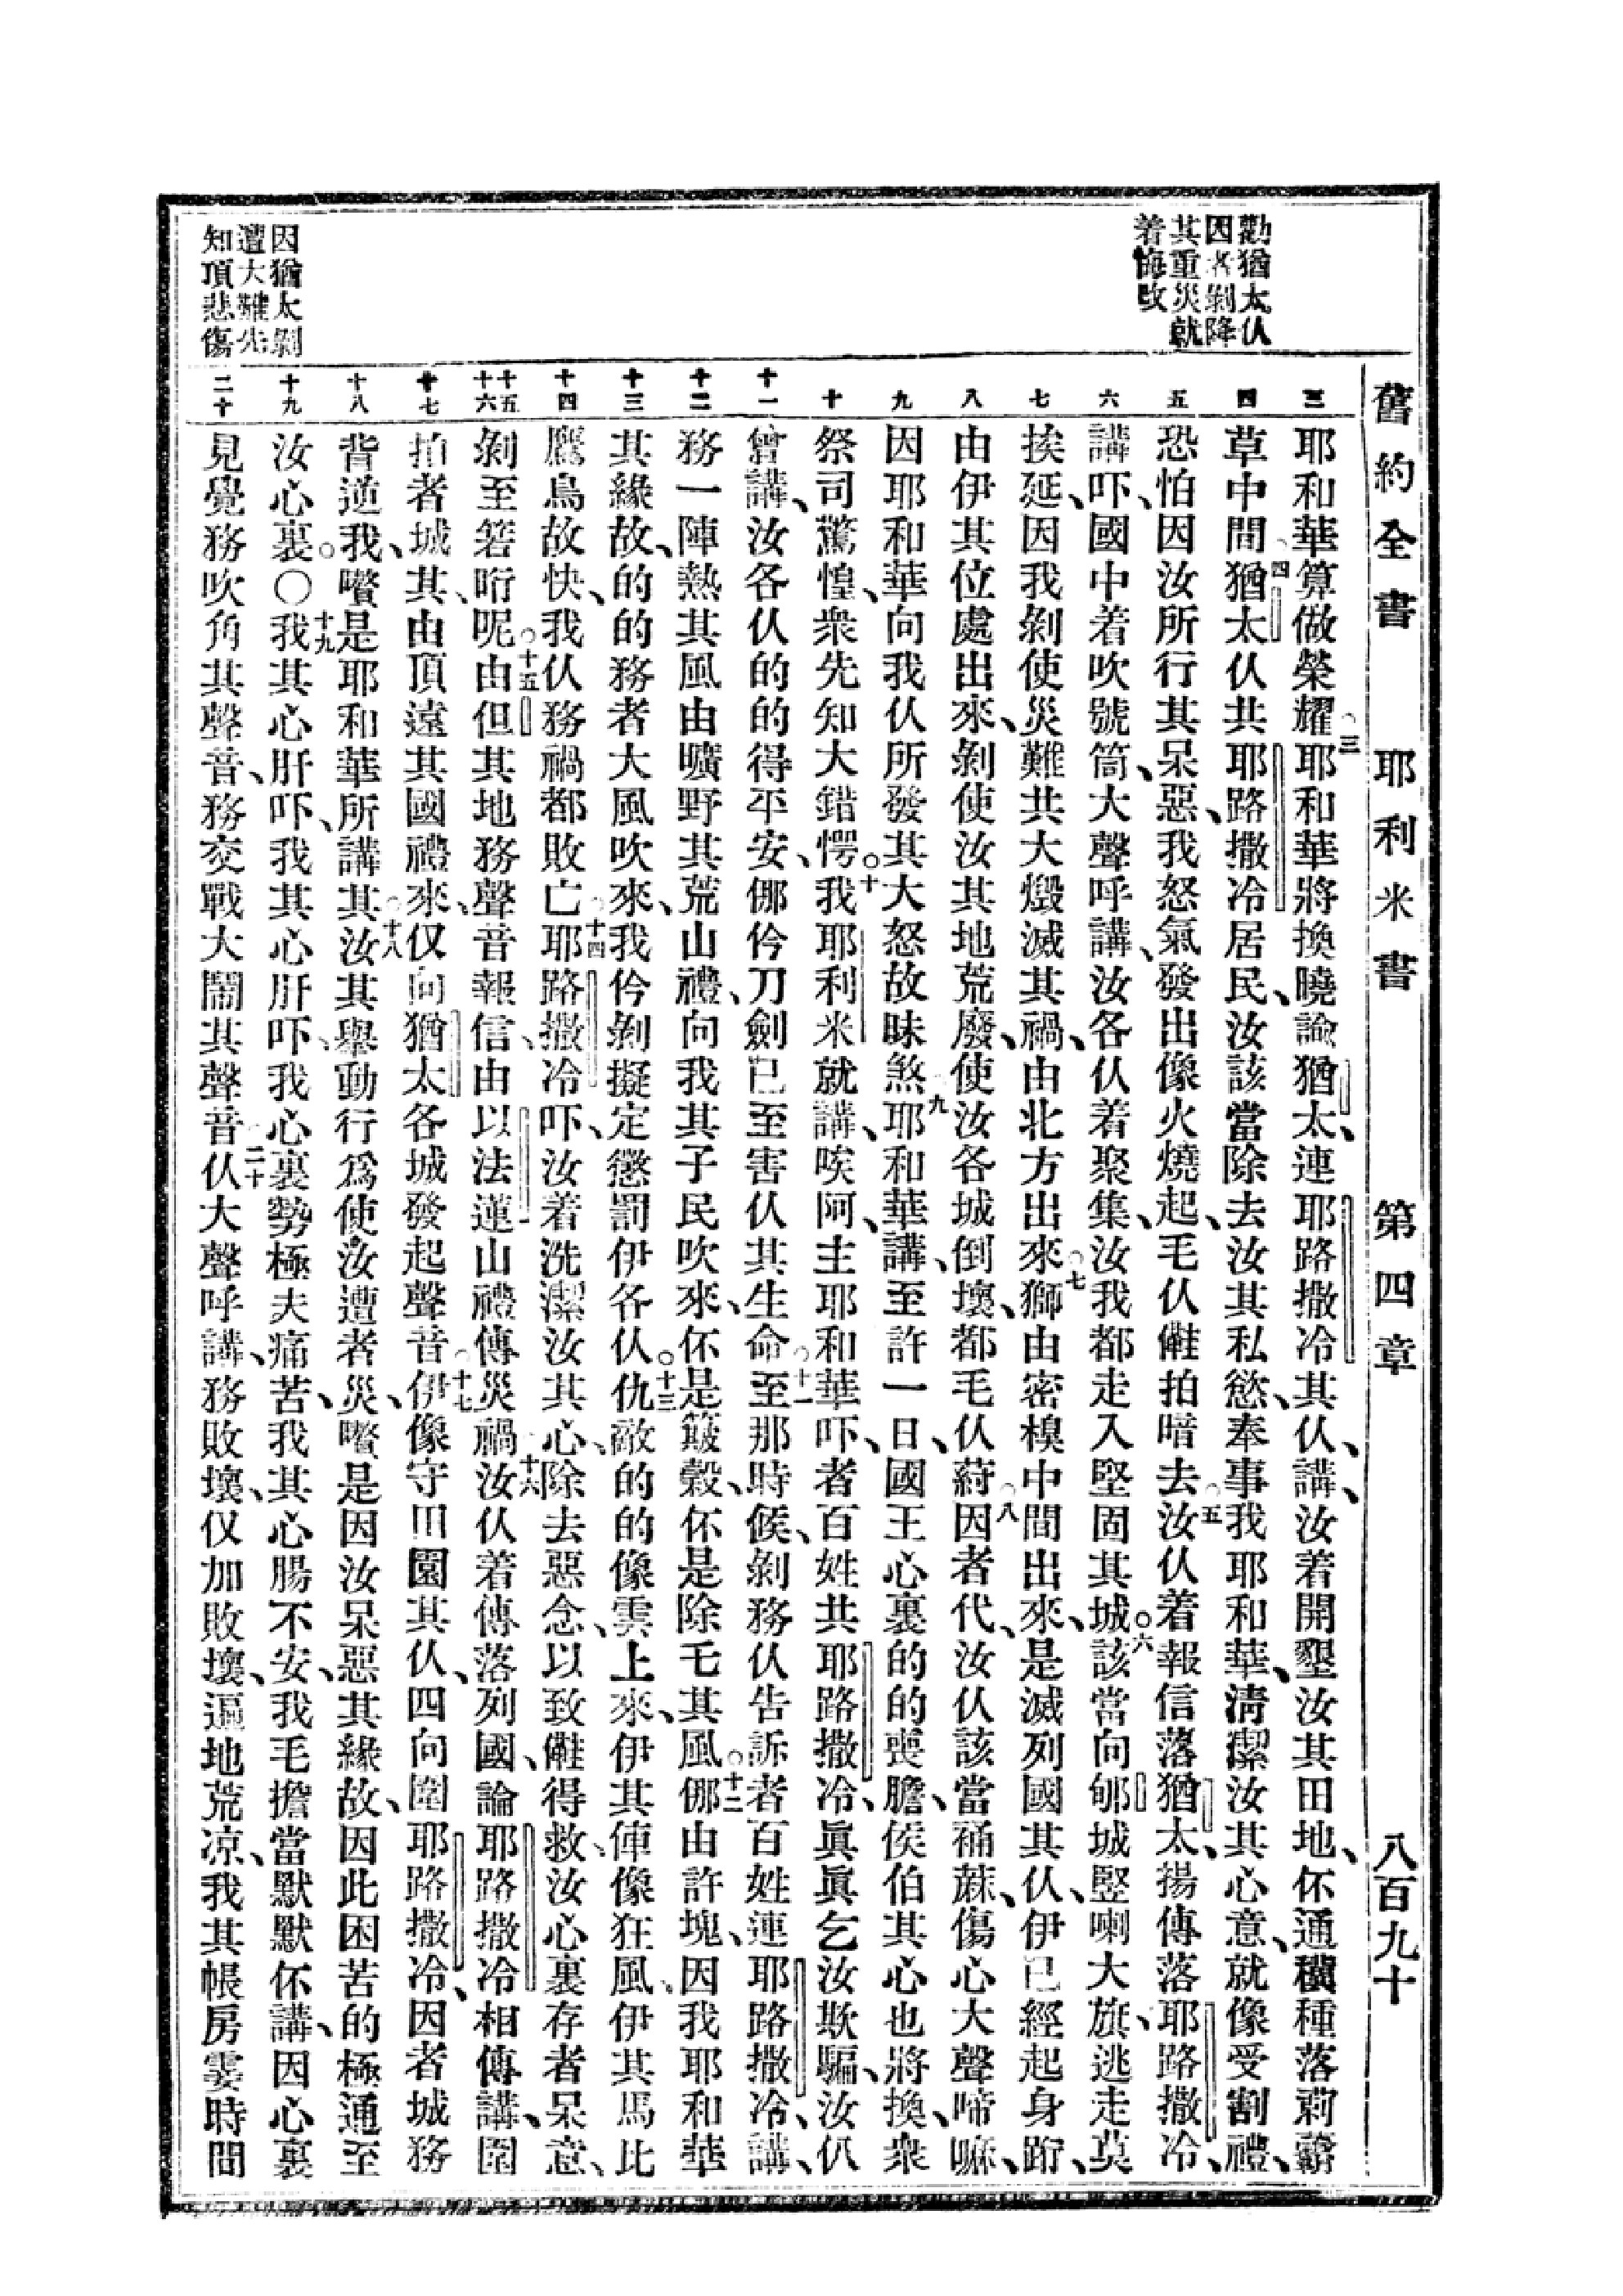 舊約全書 耶利米書 第四章 八百九十
勸猶太仈
因者剝降
其重災就
着悔改
三 四 五 六 七 八 九 十 十一 十二 十三 十四 十五 十六 十七 十八 十九 二十
耶和華算做榮耀。三耶和華將換曉諭猶太、連耶路撒冷其仈、講、汝着開墾汝其田地、伓通穳種落莿
草中間。四猶太仈共耶路撒冷居民、汝該當除去汝其私慾、奉事我耶和華、淸潔汝其心意、就像受割禮、
恐怕因汝所行其呆惡、我怒氣發出像火燒起、毛仈𣍐拍暗去。五汝仈着報信落猶太、揚傳落耶路撒冷、
講吓、國中着吹號筒、大聲呼講、汝各仈着聚集、汝我都走入堅固其城。六該當向郇城竪喇大旗、逃走莫
挨延、因我剝使災難共大燬滅其禍、由北方出來。七獅由密模中間出來、是滅列國其仈、伊已經起身跲、
由伊其位處出來、剝使汝其地荒廢、使汝各城倒壞、都毛仈葤。八因者代、汝仈該當䙋蔴、傷心大聲啼嘛、
因耶和華向我仈所發其大怒故昧煞。九耶和華講、至許一日、國王心裏的的喪膽、侯伯其心也將換、衆
祭司驚惶、衆先知大錯愕。十我耶利米就講、唉阿、主耶和華吓、者百姓共耶路撒冷、眞眞乞汝欺騙、汝仈
曾講、汝各仈的的得平安、倻仱刀劍已至害仈其生命。十一至那時候、剝務仈告訴者百姓連耶路撒冷、講、
務一陣熱其風由曠野其荒山禮、向我其子民吹來、伓是簸穀、伓是除毛其風。十二倻由許塊、因我耶和華
其緣故、的的務者大風吹來、我仱剝擬定懲罰伊各仈。十三仇敵的的像雲上來、伊其俥像狂風、伊其馬比
鷹鳥故快、我仈務禍都敗亡。十四耶路撒冷吓、汝着洗潔汝其心、除去惡念、以致𣍐得救、汝心裏存者呆意、
剝至箬𣍐呢。十五由但其地務聲音報信、由以法蓮山禮傳災禍。十六汝仈着傳落列國、論耶路撒冷相傳講、圍
拍者城其、由頂遠其國禮來、仅向猶太各城發起聲音。十七伊像守田園其仈、四向圍耶路撒冷、因者城務
背逆我、嚽是耶和華所講其。十八汝其舉動行爲使汝遭者災、嚽是因汝呆惡其緣故、因此困苦的極通至
汝心裏。〇十九我其心肝吓、我其心肝吓、我心裏勢極夫痛苦、我其心腸不安、我毛擔當默默伓講、因心裏
見覺務吹角其聲音、務交戰大鬧其聲音。二十仈大聲呼講、務敗壞、仅加敗壞、逼地荒凉、我其帳房霎時間
因猶太剝
遭大難先
知頂悲傷